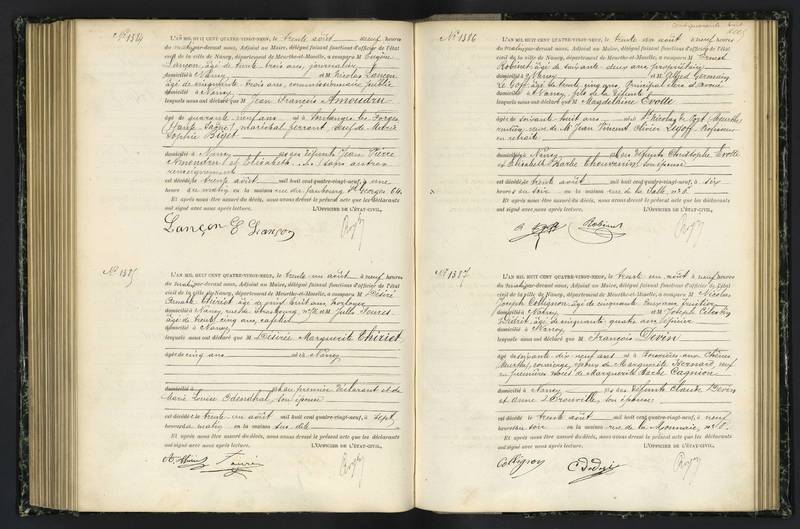 N° 1384
L'AN MIL HUIT CENT QUATRE-VINGT-NEUF, le trente août neuf heures
du matin par-devant nous, Adjoint au Maire, délégué faisant fonctions d'officier de l'état
civil de la ville de Nancy, département de Meurthe-et-Moselle, a comparu M Eugène
Lançon, âgé de trente trois ans, journalier
domicilié à Nancy et M Nicolas Lançon
âgé de cinquante trois ans, commissionnaire public
domicilié à Nancy
lesquels nous ont déclaré que M Jean François Amoudru
âgé de quarante neuf ans né à
(Haute Saône) maréchal ferrant, veuf de Marie
Sophie Biget
domicilié à Nancy fils des défunts Jean Pierre
Amoudru et Elisabeth (sans autres
renseignements
est décédé le trente août mil huit cent quatre-vingt-neuf, à une
heure du matin en la maison rue du faubourg St Georges 64.
Et après nous être assuré du décès, nous avons dressé le présent acte que les déclarants
ont signé avec nous après lecture. L'OFFICIER DE L'ÉTAT-CIVIL,
Lançon E Lançon
N° 1385
L'AN MIL HUIT CENT QUATRE-VINGT-NEUF, le trente un août à neuf heures
du matin par-devant nous, Adjoint au Maire, délégué faisant fonctions d'officier de l'état
civil de la ville de Nancy, département de Meurthe-et-Moselle, a comparu M Désiré
Thiriet âgé de vingt huit ans, horloger
domicilié à Nancy, rue de Strasbourg, et M Jules
âgé de trente cinq ans,
domicilié à Nancy
lesquels nous ont déclaré que M Désirée Marguerite Thiriet
âgée de cinq ans née à Nancy
domiciliée à fille du premier déclarant et de
Marie Louise son épouse
est décédée le trente un août mil huit cent quatre-vingt-neuf, à sept
heures du matin en la maison sus dite
Et après nous être assuré du décès, nous avons dressé le présent acte que les déclarants
ont signé avec nous après lecture. L'OFFICIER DE L'ÉTAT-CIVIL,
N° 1386
L'AN MIL HUIT CENT QUATRE-VINGT-NEUF, le trente un août à neuf heures
du matin par-devant nous, Adjoint au Maire, délégué faisant fonctions d'officier de l'état
civil de la ville de Nancy, département de Meurthe-et-Moselle, a comparu M Ernest
Robinet, âgé de soixante deux ans, propriétaire
domicilié à Nancy et M Alfred Germain
âgé de trente cinq ans, principal clerc d'avoué
domicilié à Nancy, fils de la défunte
lesquels nous ont déclaré que M Magdelaine Evotte
âgée de soixante huit ans née à St Nicolas de Port (Meurthe)
rentière, veuve de M Jean Vincent Olivier Professeur
en retraite
domiciliée à Nancy fille des défunts Christophe Evotte
et Elisabeth Barbe Thouvenin, son épouse
est décédée le trente août mil huit cent quatre-vingt-neuf, à six
heures du soir en la maison rue de la Salle, n° 8.
Et après nous être assuré du décès, nous avons dressé le présent acte que les déclarants
ont signé avec nous après lecture. L'OFFICIER DE L'ÉTAT-CIVIL,
Robinet
N° 1387
L'AN MIL HUIT CENT QUATRE-VINGT-NEUF, le trente un août à neuf heures
du matin par-devant nous, Adjoint au Maire, délégué faisant fonctions d'officier de l'état
civil de la ville de Nancy, département de Meurthe-et-Moselle, a comparu M Nicolas
Joseph Collignon, âgé de cinquante cinq ans fruitier
domicilié à Nancy, et M Joseph Célestin
âgé de cinquante quatre ans épicier
domicilié à Nancy
lesquels nous ont déclaré que M François Devin
âgé de soixante dix neuf ans né à Rosières aux Salines
(Meurthe) époux de Marguerite Bernard, veuf
en premières noces de Marguerite Barbe Cagnion
domicilié à Nancy fils des défunts Claude Devin
et Anne son épouse
est décédé le trente août mil huit cent quatre-vingt-neuf, à neuf
heures du soir en la maison rue de la Monnaie, n° 8.
Et après nous être assuré du décès, nous avons dressé le présent acte que les déclarants
ont signé avec nous après lecture. L'OFFICIER DE L'ÉTAT-CIVIL,
Collignon